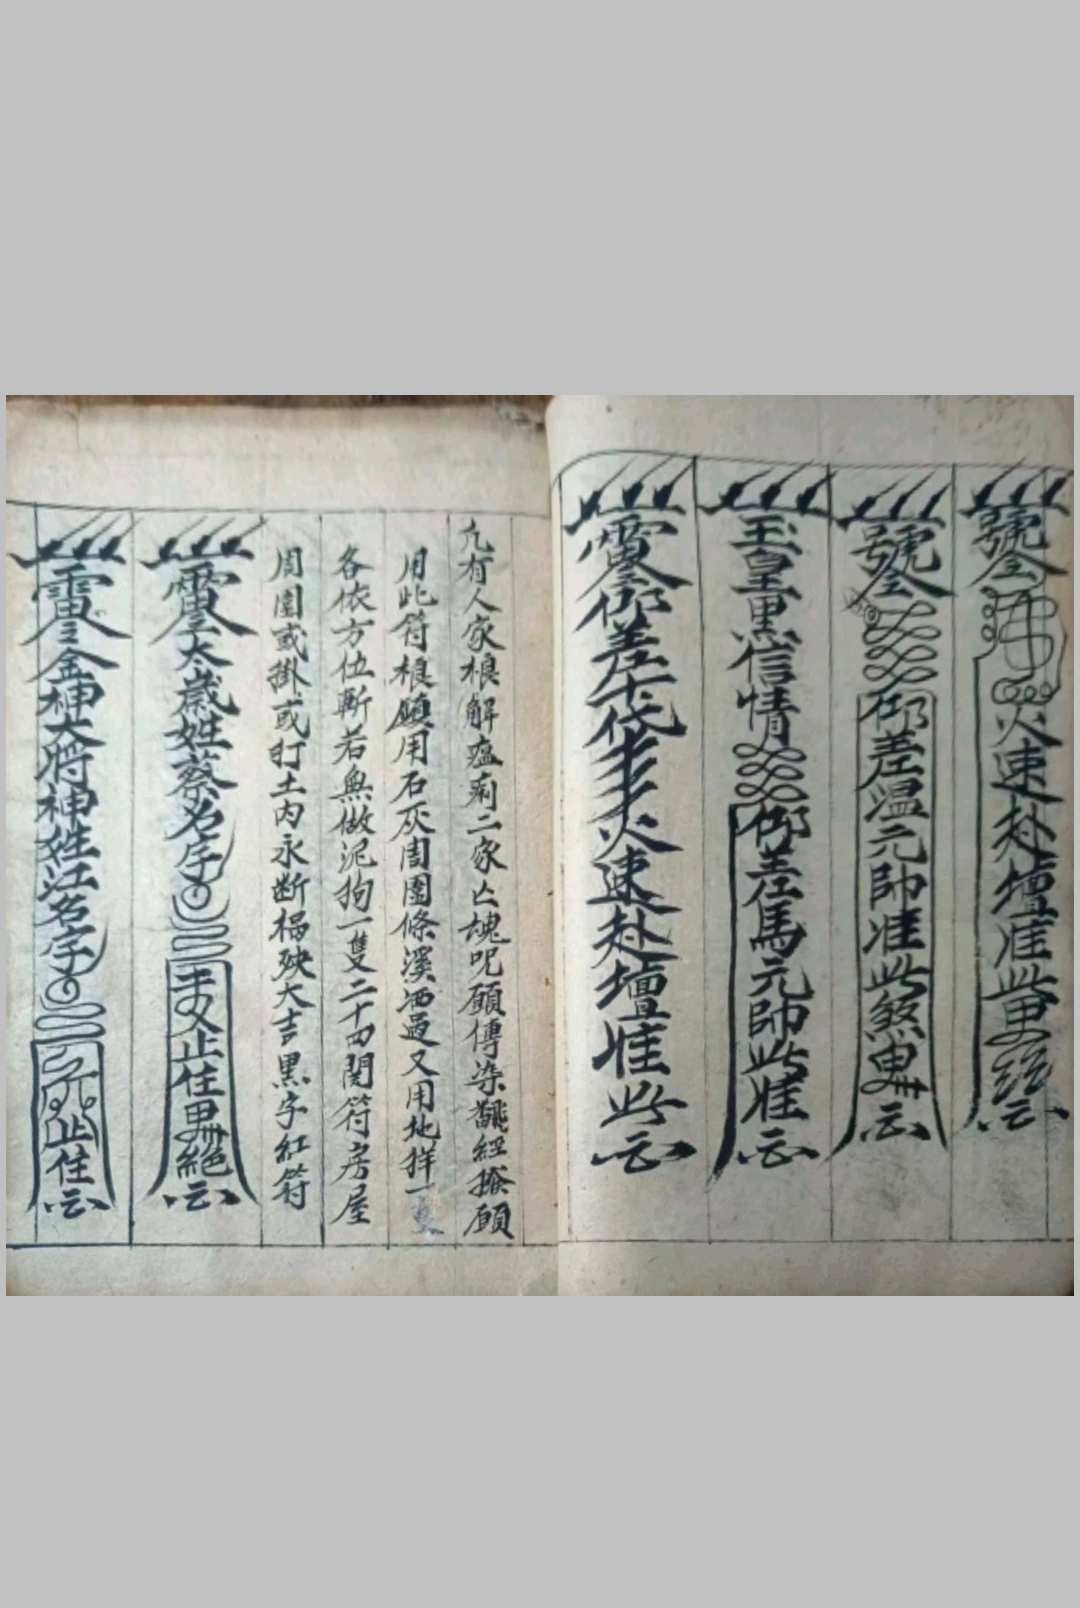 號令火速赴壇准此
號令御差溫元帥准此煞
玉皇黑信情御差馬元帥此准
御差火速赴壇准此
凡有人家根解瘟痢二家亡魂呪願傳染經願
用此符根鎮用石灰周圍條溪洒過又用地羊一隻
各依方位斬若無做泥狗一隻二十四関符房屋
周圍或掛或打土內永断禍殃大吉黑字紅符
太歲姓蔡名字止住絕
金神大將神姓江名字止住